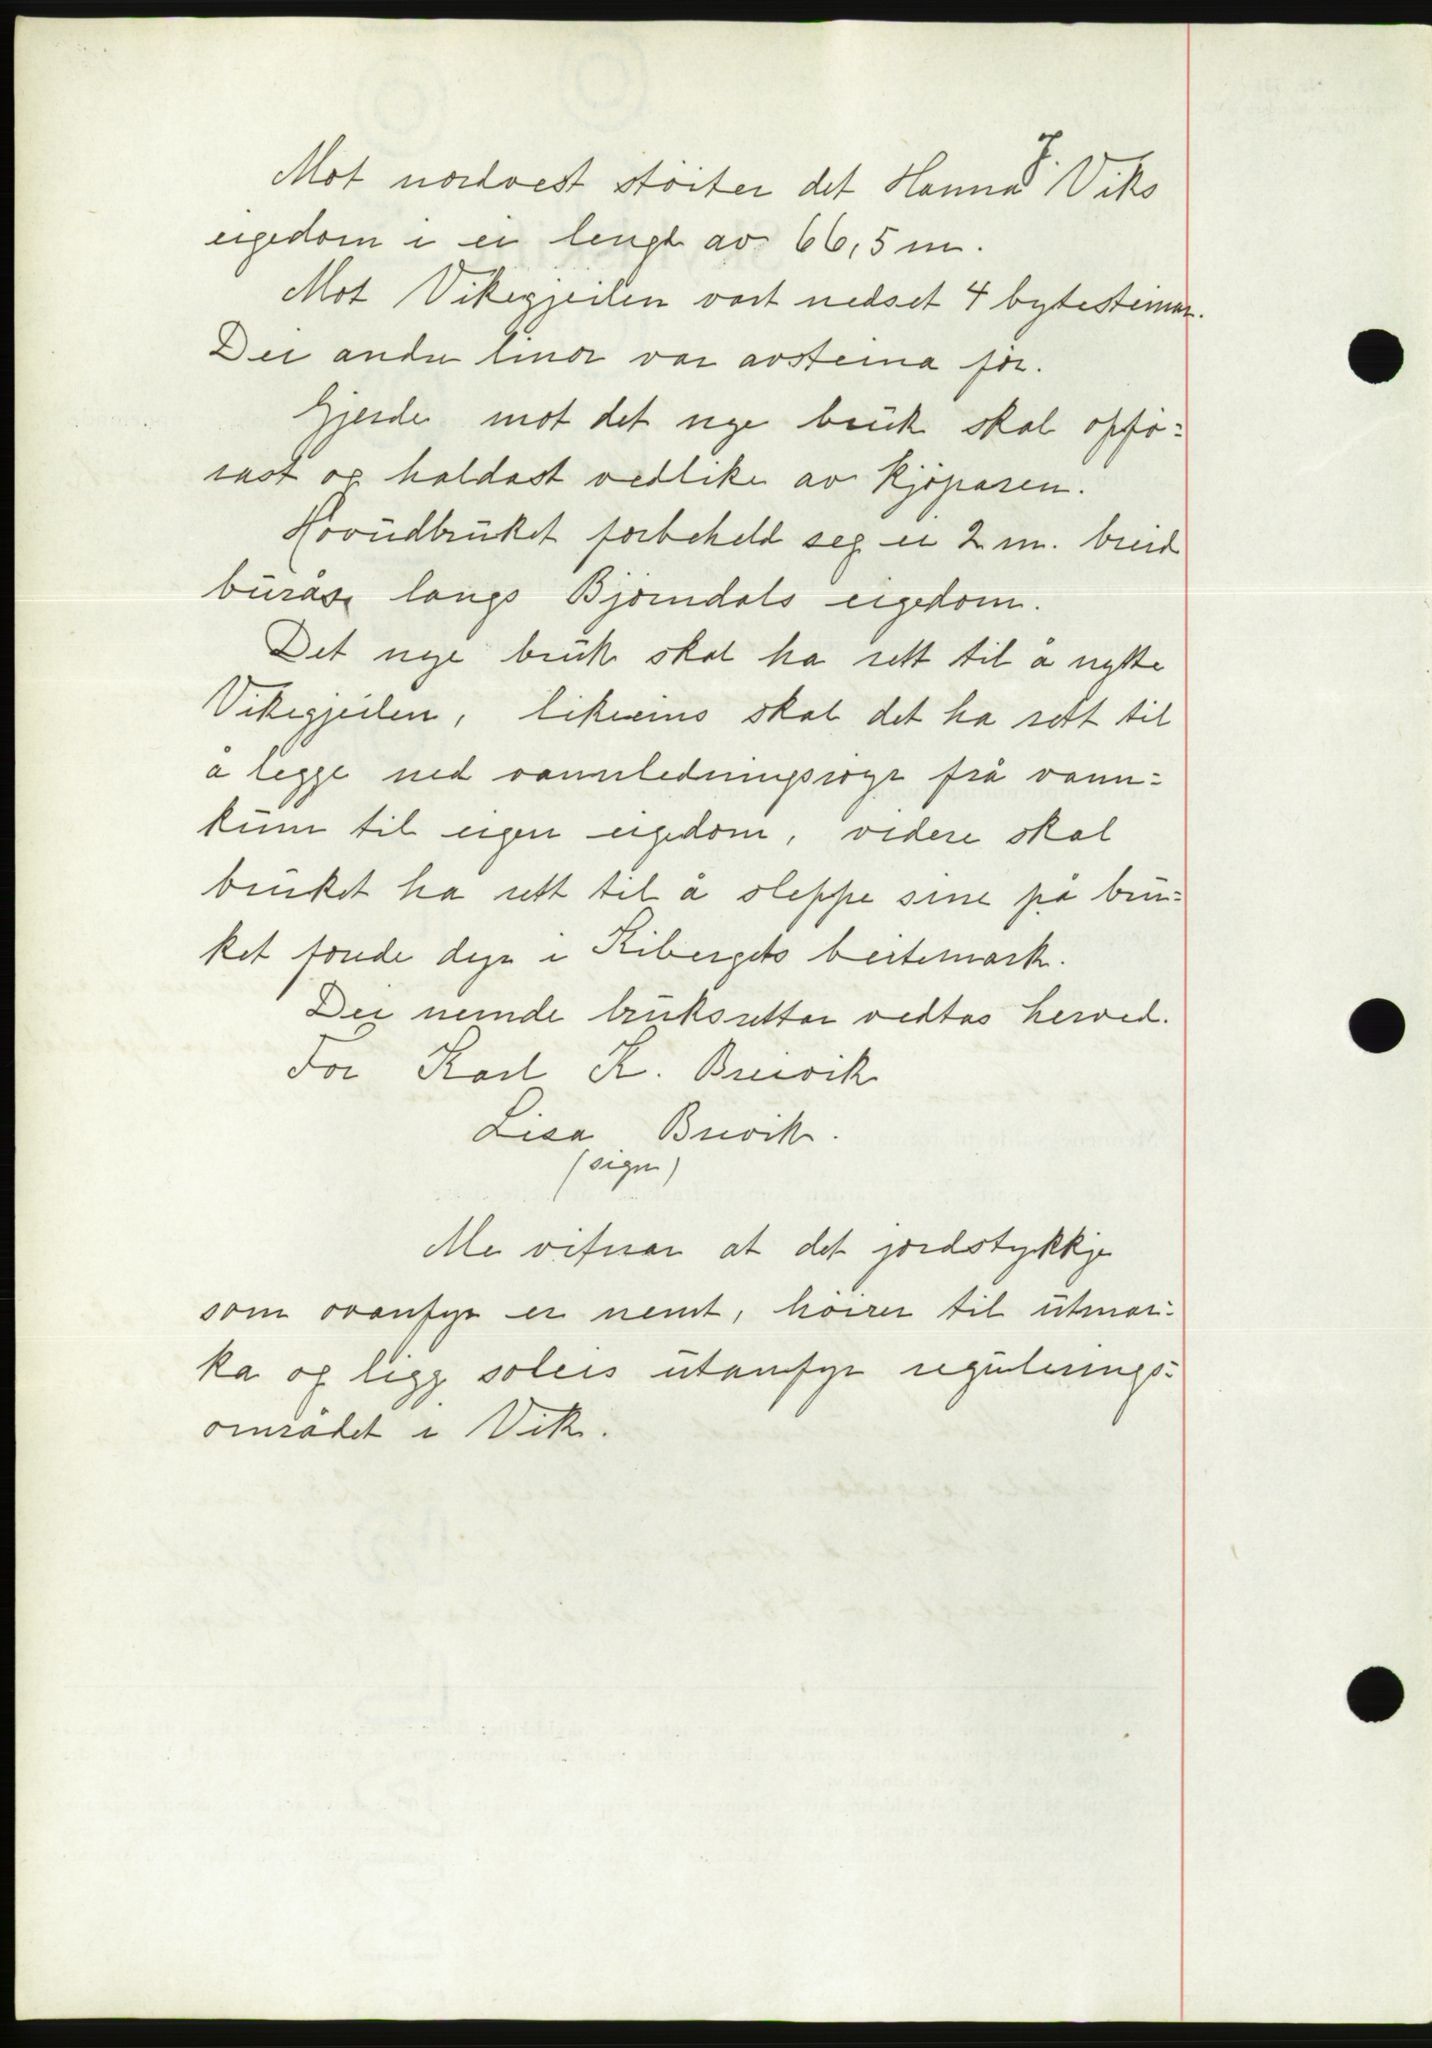 Mot nordvest støiter det Hanna J. Viks
eigedom i ei lengd av 66,5 m.
Mot Vikegjeilen vart nedset 4 bytesteinar.
Dei andre linor var avsteina før.
Gjerde mot det nye bruk skal opfø-
rast og haldast vedlike av kjøparen.
Hovudbruket forbeheld seg ei 2 m. breid
buråse langs Bjørndals eigedom.
Det nye bruk skal ha rett til å nytte
Vikegjeilen, likeeins skal det ha rett til
å legge ned vannledningsrøyr frå vann-
kum til eigen eigedom, videre skal
bruket ha rett til å sleppe sine på bru-
ket forede dyr i Kibergets beitemark.
Dei nemde bruksrettar vedtas herved.
For Karl K. Breivik
Lisa Breivik.
(sign)
Me vitnar at det jordstykkje
som ovanfyr er nemt, høirer til utmar-
ka og ligg soleis utanfyr regulerings-
området i Vik.